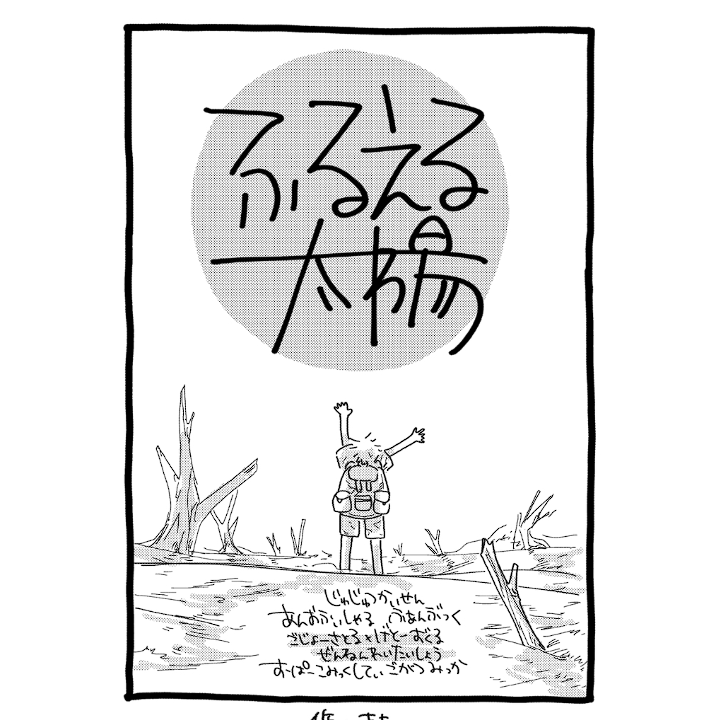 ふるえる
太陽
じゅじゅつかいせん
あんおふぃしゃる ふぁんぶっく
ごじょーさとる×げとーすぐる
ぜんねんれいたいしょう
すーぱーこみっくしてぃ ごがつみっか